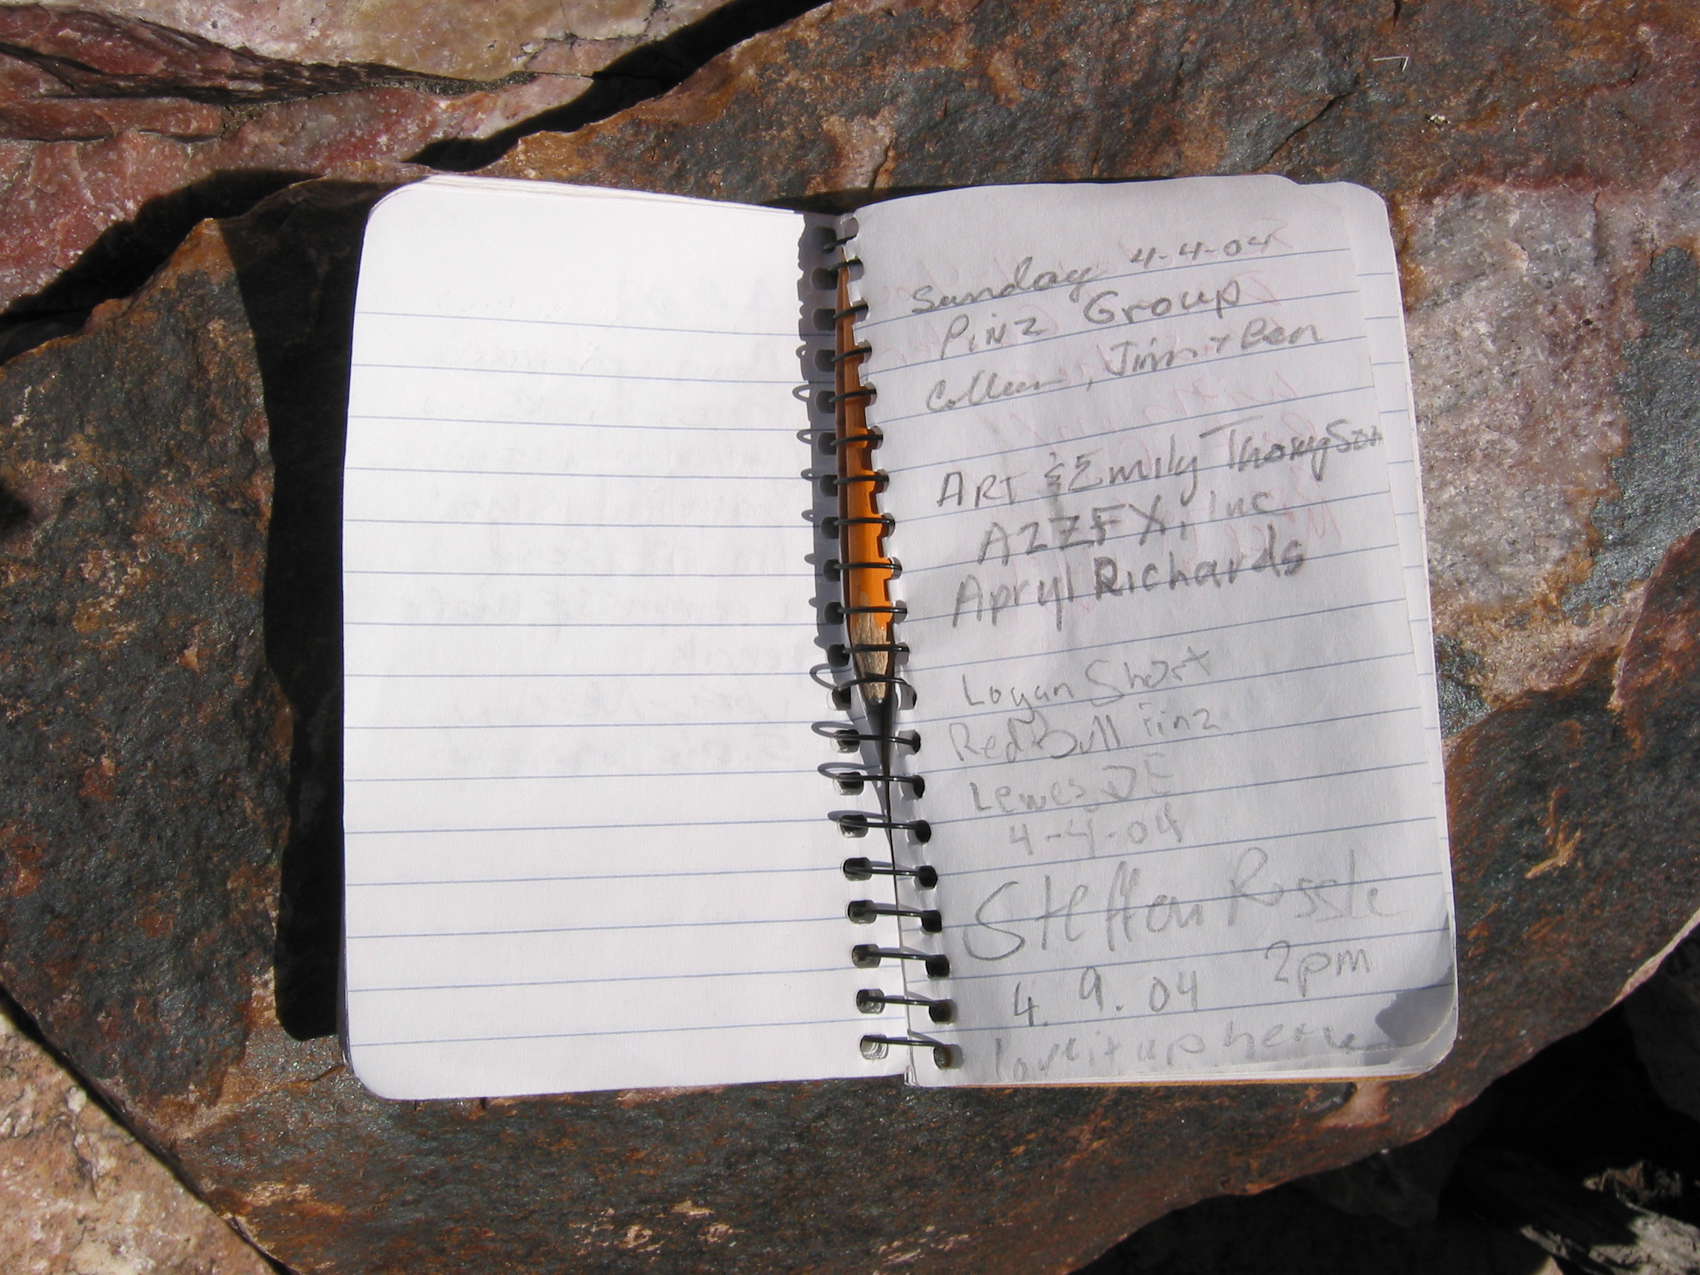 Sunday 4-4-04
Pinz Group
Colleen, Jim + Ben
ART & Emily Thompson
A2ZFX, Inc
Apryl Richards
Logan Short
Red Bull
Lewes DE
4-4-04
Steffen
4.9.04 2pm
love it up here